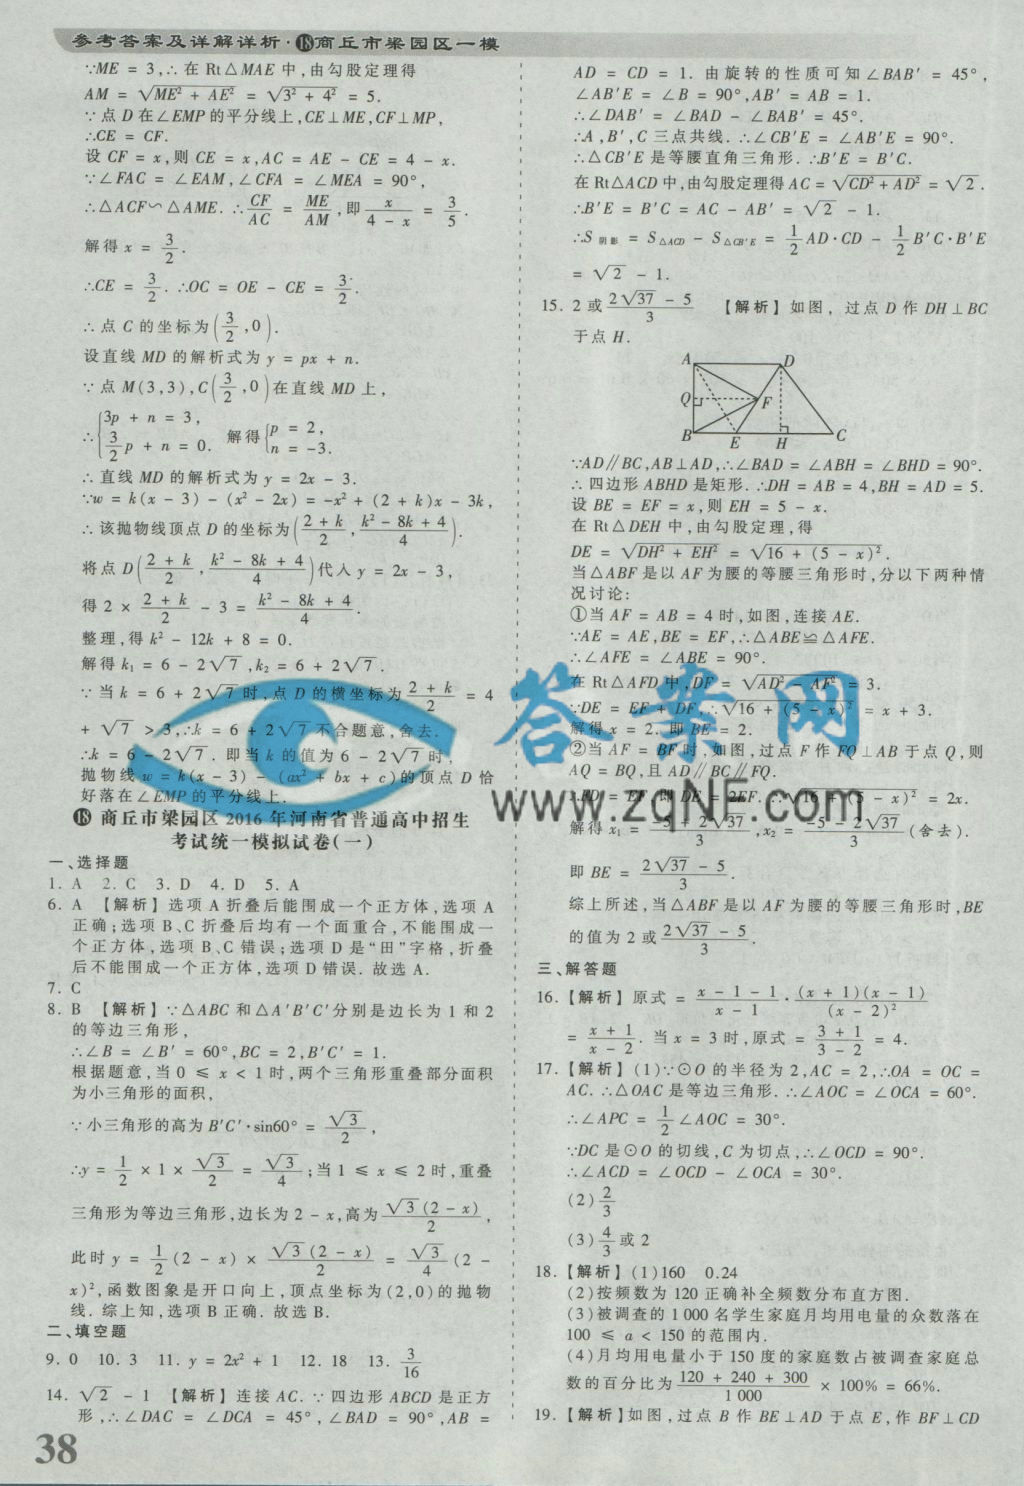 参考答案及详解详析·⑱商丘市梁园区一模
∵ME = 3,∴在 Rt△MAE 中,由勾股定理得
AM = √(ME² + AE²) = √(3² + 4²) = 5.
∵点 D 在∠EMP 的平分线上,CE⊥ME,CF⊥MP,
∴CE = CF.
设 CF = x,则 CE = x,AC = AE - CE = 4 - x.
∵∠FAC = ∠EAM,∠CFA = ∠MEA = 90°,
∴△ACF∽△AME. ∴CF/AC = ME/AM,即 x/(4 - x) = 3/5.
解得 x = 3/2.
∴CE = 3/2. ∴OC = OE - CE = 3/2.
∴点 C 的坐标为(3/2,0).
设直线 MD 的解析式为 y = px + n.
∵点 M(3,3),C(3/2,0)在直线 MD 上,
∴{3p + n = 3, 3/2 p + n = 0. 解得{p = 2, n = -3.
∴直线 MD 的解析式为 y = 2x - 3.
∵w = k(x - 3) - (x² - 2x) = -x² + (2 + k)x - 3k,
∴该抛物线顶点 D 的坐标为((2 + k)/2,(k² - 8k + 4)/4).
将点 D((2 + k)/2,(k² - 8k + 4)/4)代入 y = 2x - 3,
得 2 × (2 + k)/2 - 3 = (k² - 8k + 4)/4.
整理,得 k² - 12k + 8 = 0.
解得 k₁ = 6 - 2√7,k₂ = 6 + 2√7.
∵当 k = 6 + 2√7时,点 D 的横坐标为(2 + k)/2 = 4
+ √7 > 3,∴k = 6 + 2√7不合题意,舍去.
∴k = 6 - 2√7. 即当 k 的值为 6 - 2√7时,
抛物线 w = k(x - 3) - (ax² + bx + c)的顶点 D 恰
好落在∠EMP 的平分线上.
⑱ 商丘市梁园区 2016 年河南省普通高中招生
考试统一模拟试卷(一)
一、选择题
1. A 2. C 3. D 4. D 5. A
6. A 【解析】选项 A 折叠后能围成一个正方体,选项 A
正确;选项 B、C 折叠后均有一个面重合,不能围成一
个正方体,选项 B、C 错误;选项 D 是“田”字格,折叠
后不能围成一个正方体,选项 D 错误. 故选 A.
7. C
8. B 【解析】∵△ABC 和△A′B′C′分别是边长为 1 和 2
的等边三角形,
∴∠B = ∠B′ = 60°,BC = 2,B′C′ = 1.
根据题意,当 0 ≤ x < 1时,两个三角形重叠部分面积
为小三角形的面积.
∵小三角形的高为 B′C′·sin60° = √3/2,
∴y = 1/2 × 1 × √3/2 = √3/4;当 1 ≤ x ≤ 2时,重叠
三角形为等边三角形,边长为 2 - x,高为√3(2 - x)/2,
此时 y = 1/2(2 - x) × √3(2 - x)/2 = √3/4(2 -
x)²,函数图象是开口向上,顶点坐标为(2,0)的抛物
线. 综上知,选项 B 正确. 故选 B.
二、填空题
9. 0 10. 3 11. y = 2x² + 1 12. 18 13. 3/16
14. √2 - 1 【解析】连接 AC. ∵四边形 ABCD 是正方
形,∴∠DAC = ∠DCA = 45°,∠BAD = 90°,AB =
38
AD = CD = 1. 由旋转的性质可知∠BAB′ = 45°,
∠AB′E = ∠B = 90°,AB′ = AB = 1.
∴∠DAB′ = ∠BAD - ∠BAB′ = 45°.
∴A,B′,C 三点共线. ∴∠CB′E = ∠AB′E = 90°.
∴△CB′E 是等腰直角三角形. ∴B′E = B′C.
在Rt△ACD中,由勾股定理得 AC = √(CD² + AD²) = √2.
∴B′E = B′C = AC - AB′ = √2 - 1.
∴S阴影 = S△ACD - S△CB′E = 1/2 AD·CD - 1/2 B′C·B′E
= √2 - 1.
15. 2 或(2√37 - 5)/3 【解析】如图, 过点 D 作 DH⊥BC
于点 H.
A D
Q F
B E H C
∵AD∥BC,AB⊥AD,∴∠BAD = ∠ABH = ∠BHD = 90°.
∴四边形 ABHD 是矩形. ∴DH = AB = 4,BH = AD = 5.
设 BE = EF = x,则 EH = 5 - x.
在 Rt△DEH 中,由勾股定理,得
DE = √(DH² + EH²) = √(16 + (5 - x)²).
当△ABF 是以 AF 为腰的等腰三角形时,分以下两种情
况讨论:
①当 AF = AB = 4时,如图,连接 AE.
∵AE = AE,BE = EF,∴△ABE≌△AFE.
∴∠AFE = ∠ABE = 90°.
在 Rt△AFD 中,DF = √(AD² - AF²) = 3.
∵DE = EF + DF,∴√(16 + (5 - x)²) = x + 3.
解得 x = 2. 即 BE = 2.
②当 AF = BF 时,如图,过点 F 作 FQ⊥AB 于点 Q,则
AQ = BQ,且 AD∥BC∥FQ.
∴FD = EF. 即 DE = 2EF. ∴√(16 + (5 - x)²) = 2x.
解得 x₁ = (-5 + 2√37)/3,x₂ = (-5 - 2√37)/3(舍去).
即 BE = (2√37 - 5)/3.
综上所述,当△ABF 是以 AF 为腰的等腰三角形时,BE
的值为 2 或(2√37 - 5)/3.
三、解答题
16.【解析】原式 = (x - 1 - 1)/(x - 1)·(x + 1)(x - 1)/(x - 2)²
= (x + 1)/(x - 2). 当 x = 3 时,原式 = (3 + 1)/(3 - 2) = 4.
17.【解析】(1)∵⊙O 的半径为 2,AC = 2,∴OA = OC =
AC. ∴△OAC 是等边三角形. ∴∠AOC = ∠OCA = 60°.
∴∠APC = 1/2∠AOC = 30°.
∵DC 是⊙O 的切线,C 为切点,∴∠OCD = 90°.
∴∠ACD = ∠OCD - ∠OCA = 30°.
(2)2/3
(3)4/3或 2
18.【解析】(1)160 0.24
(2)按频数为 120 正确补全频数分布直方图.
(3)被调查的 1 000 名学生家庭月均用电量的众数落在
100 ≤ a < 150 的范围内.
(4)月均用电量小于 150 度的家庭数占被调查家庭总
数的百分比为(120 + 240 + 300)/1 000 × 100% = 66%.
19.【解析】如图,过点 B 作 BE⊥AD 于点 E,作 BF⊥CD
答案网
www.zqnf.com